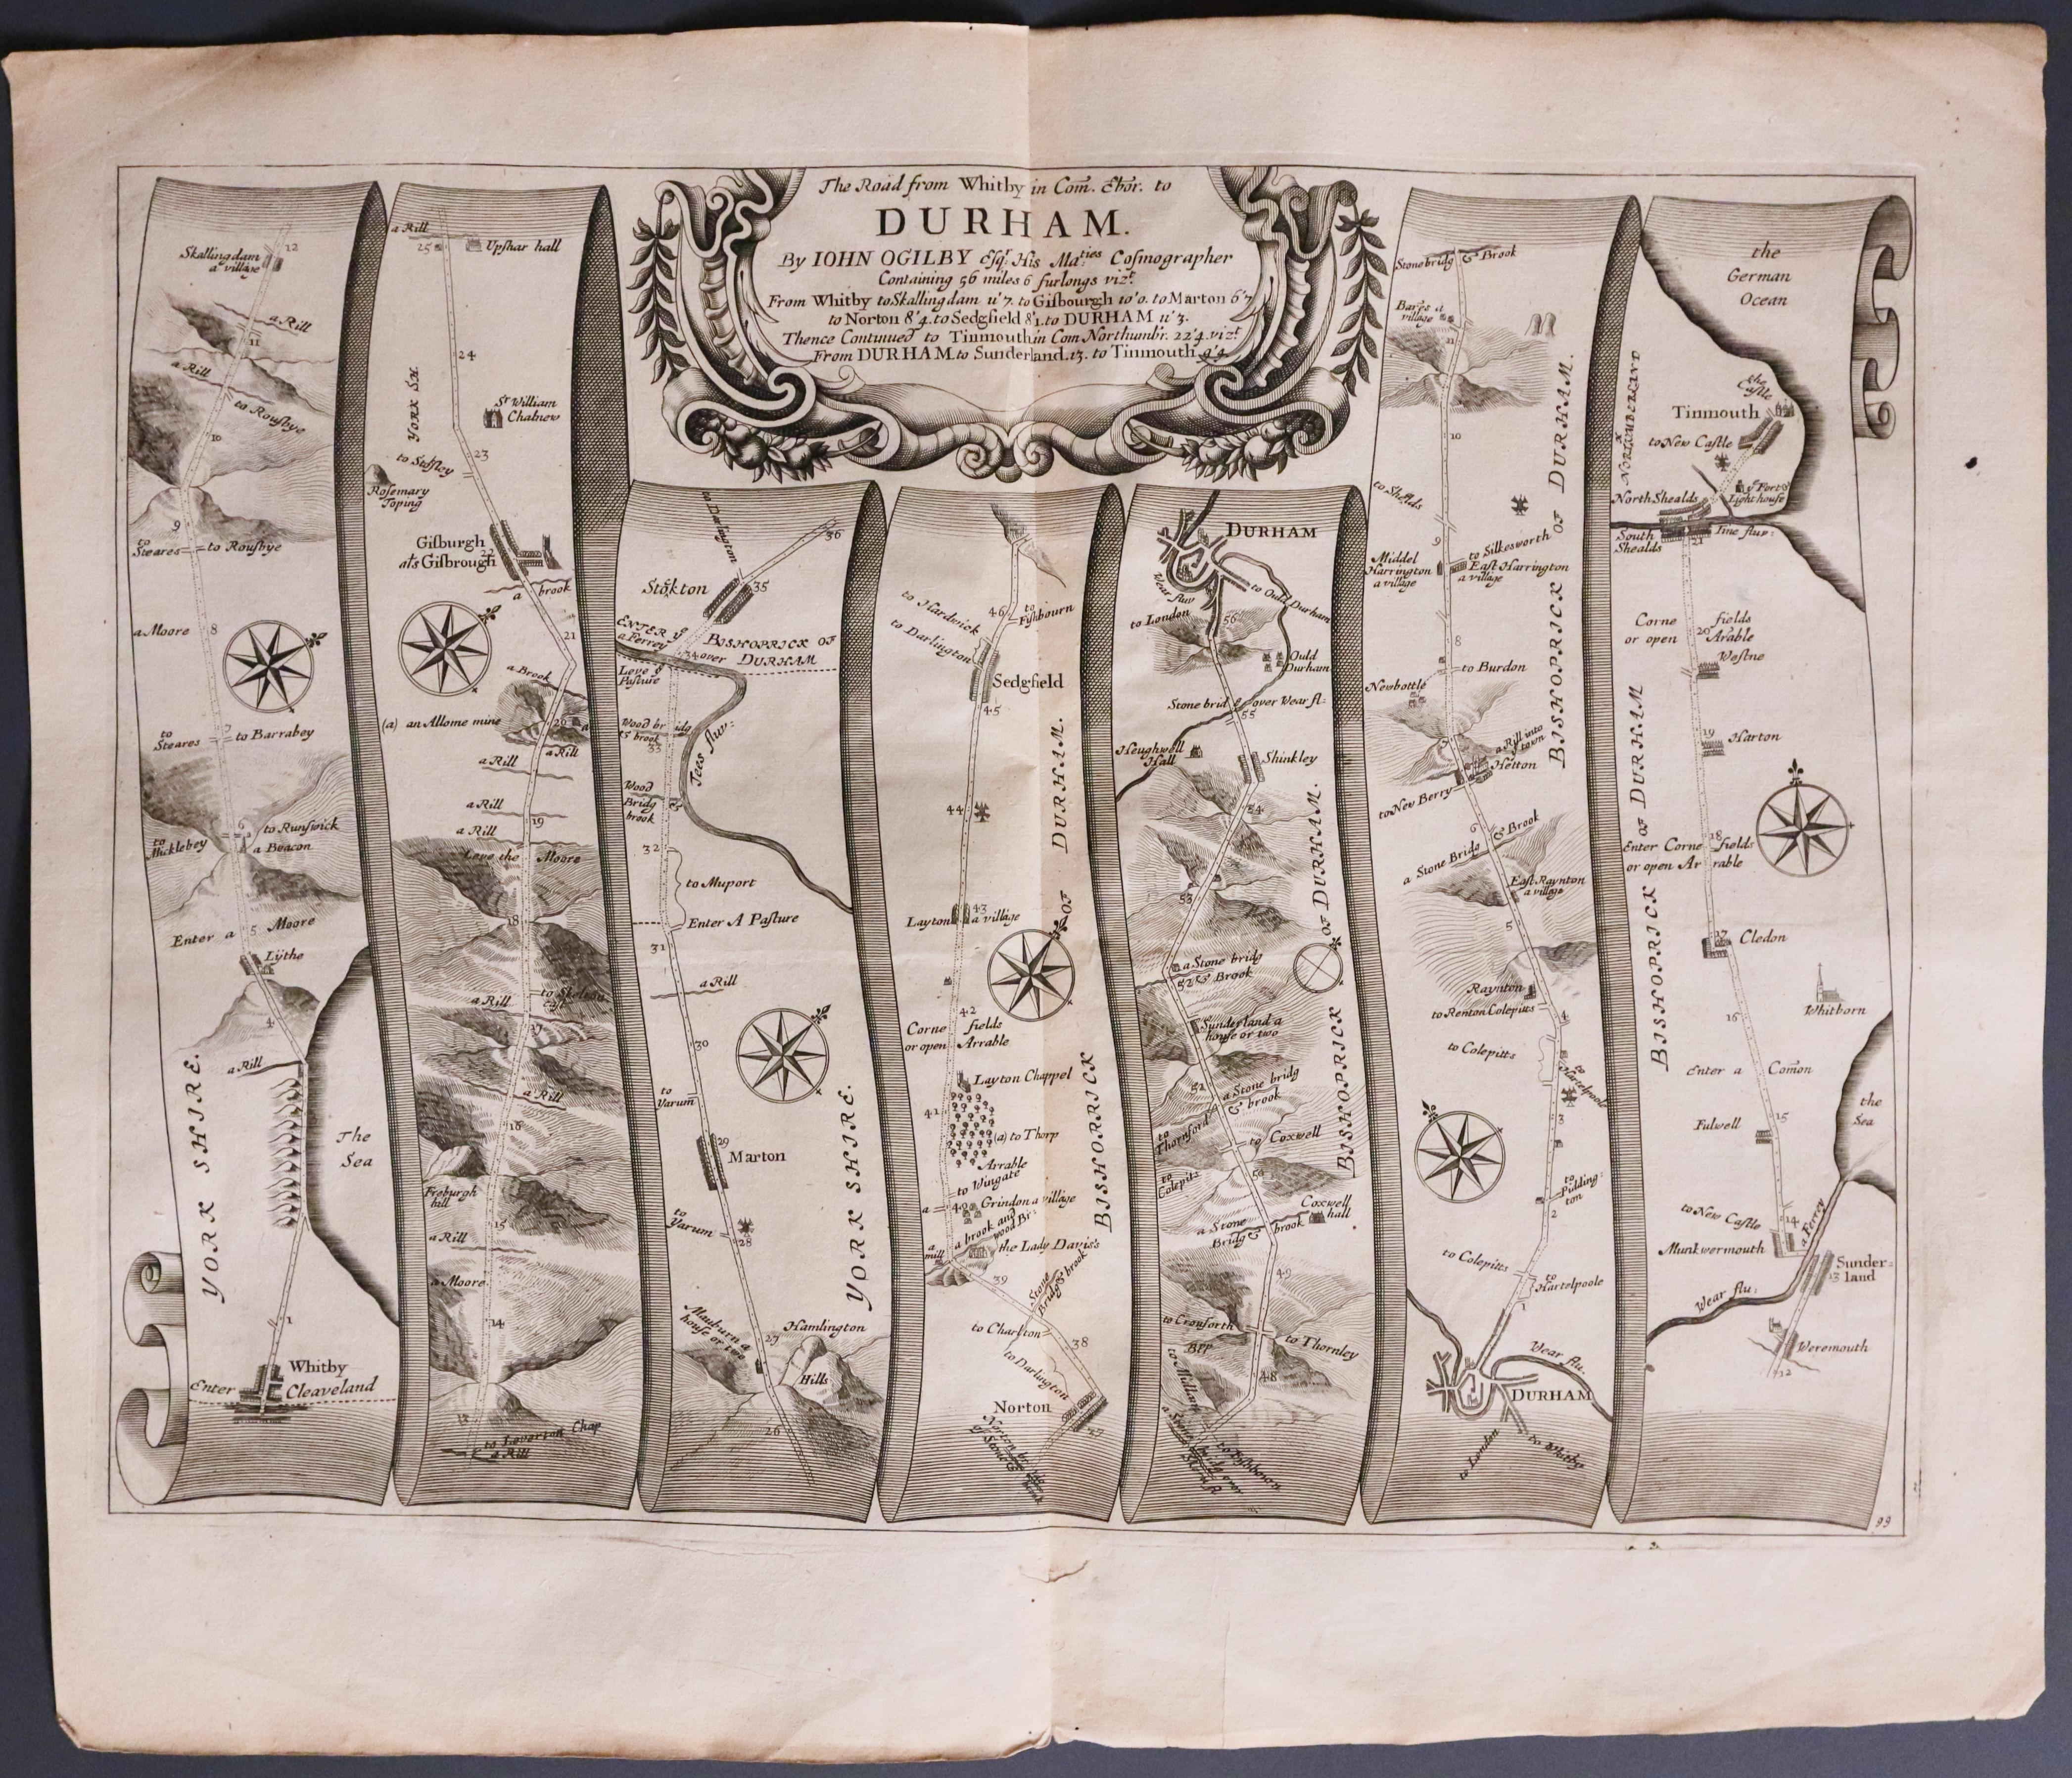 The Road from Whitby in Com. Ebor. to
DURHAM.
By IOHN OGILBY Esqr. His Maties Cosmographer
Containing 56 miles 6 furlongs vizt.
From Whitby to Skallingdam 11'7. to Gisbourgh 10'0. to Marton 6'7
to Norton 8'4. to Sedgfield 8'1. to DURHAM 11'3.
Thence Continued to Tinmouth in Com Northumbr. 22'4. vizt
From DURHAM to Sunderland. 13. to Tinmouth 9'4.
Skallingdam
a village
12
a Rill
11
a Rill
to Rousbye
10
9
to
Steares
to Rousbye
a Moore
8
7
to
Steares
to Barrabey
6
to
Micklebey
to Runswick
a Beacon
Enter a
5
Moore
Lythe
4
a Rill
The
Sea
YORK SHIRE.
1
Whitby
Enter
Cleaveland
a Rill
25
Upshar hall
24
YORK SH.
Sr William
Chalnew
23
to
Rosemary
Toping
Gisburgh
22
als Gisbrough
a brook
21
a Brook
(a) an Allome mine
20
a
a Rill
a Rill
a Rill
19
a Rill
Leve the Moore
18
a Rill
17
a Rill
16
Freburgh
hill
15
a Rill
a Moore
14
13
to Leverton Chap
a Rill
to Darlington
36
Stokton
35
ENTER ye
a Ferrey
34
over
BISHOPRICK OF
DURHAM
Leve ye
Pasture
Wood bridg
& brook
33
Tees flu:
Wood
Bridg
brook
32
to Muport
Enter A Pasture
31
a Rill
30
to
Yarum
29
Marton
to
Yarum
28
YORK SHIRE.
Mauburn a
house or two
27
Hamlington
Hills
26
46
to
Fishbourn
to Hardwick
to Darlington
Sedgfield
45
44
Layton
43
a village
42
Corne fields
or open Arrable
Layton Chappel
41
(a) to Thorp
Arrable
to Wingate
a
40
Grindon a village
a brook and
wood Br:
a
mill
the Lady Davis's
39
Stone
Bridg & brook
to Charlton
38
to Darlington
Norton
37
BISHOPRICK OF DURHAM.
DURHAM
Wear fluv
to London
to Ould Durham
56
Ould
Durham
Stone bridg over Wear fl:
55
Heughwell
Hall
Shinkley
54
53
a Stone bridg
52
& Brook
Sunderland a
house or two
51
a Stone bridg
& brook
to
Thornford
to Coxwell
to
Colepits
50
Coxwell
hall
a Stone
Bridg &
brook
49
to Cronforth
Brr
to Thornley
48
to Fishbourn
BISHOPRICK OF DURHAM.
Stonebridg & Brook
Barfes a
village
11
10
to Shelds
9
Middel
Harrington
a village
to Silkesworth
East Harrington
a village
8
to Burdon
Newbottle
a Rill into
ye town
Hetton
to New Berry
6
a Stone Bridg & Brook
East Raynton
a village
5
Raynton
to Renton Colepitts
4
to Colepitts
to
Hartelpoole
3
to
Pidding:
ton
2
to Colepitts
to
Hartelpoole
1
Wear flu.
DURHAM
to London
to Whitby
BISHOPRICK OF DURHAM.
the
German
Ocean
NORTHUMBERLAND
the
Castle
Tinmouth
to New Castle
ye Fort &
Light house
North Shealds
Tine fluv:
South
Shealds
21
Corne fields
or open
20
Arable
Westne
19
Harton
18
Enter Corne fields
or open Arrable
17
Cledon
16
Whitborn
Enter a Comon
the
Sea
15
Fulwell
to New Castle
14
a Ferrey
Munkwermouth
Sunder=
13
land
Wear flu:
Weremouth
12
BISHOPRICK OF DURHAM
99